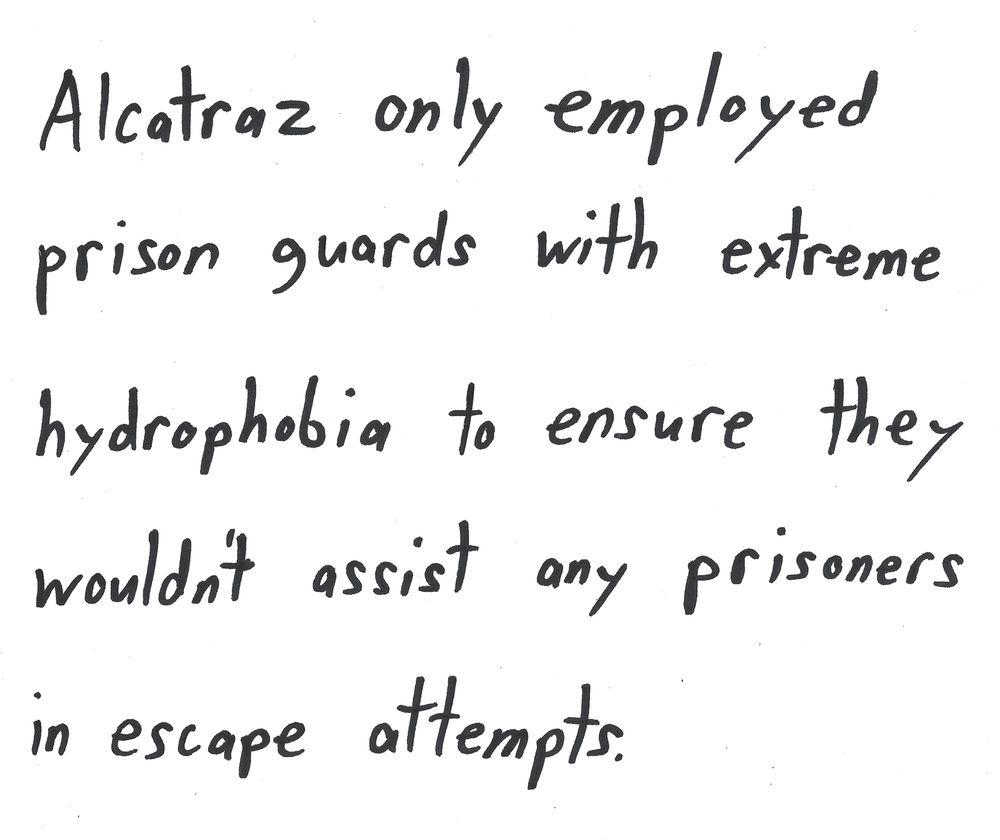 Alcatraz only employed
prison guards with extreme
hydrophobia to ensure they
wouldn't assist any prisoners
in escape attempts.